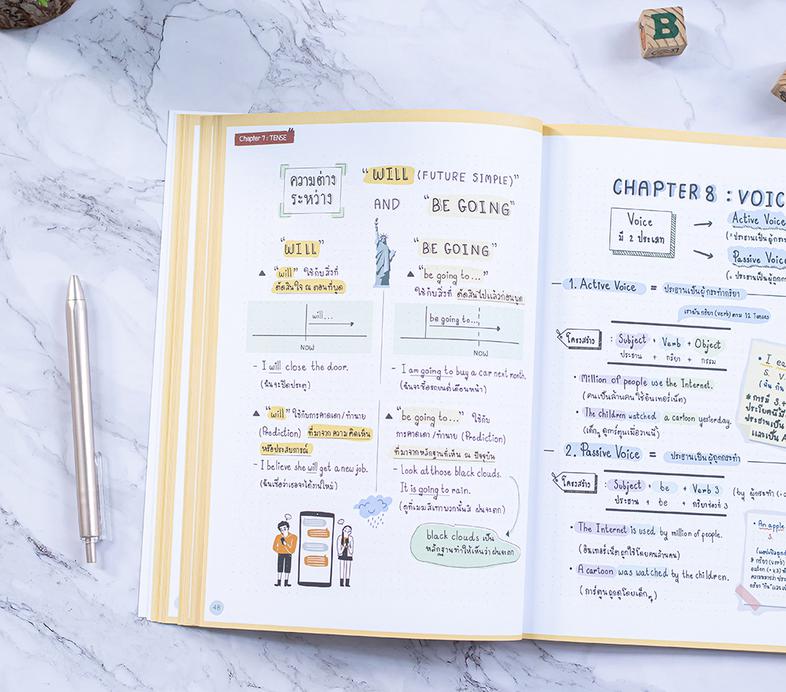 B
Chapter 7 : TENSE
ความต่าง
ระหว่าง
"WILL (FUTURE SIMPLE)"
AND "BE GOING"
"WILL"
▲ "will" ใช้กับสิ่งที่
ตัดสินใจ ณ ตอนที่พูด
will...
NOW
- I will close the door.
(ฉันจะปิดประตู)
▲ "will" ใช้กับการคาดเดา/ทำนาย
(Prediction) ที่มาจาก ความคิดเห็น
หรือประสบการณ์
- I believe she will get a new job.
(ฉันเชื่อว่าเธอจะได้งานใหม่)
"BE GOING"
▲ "be going to..."
ใช้กับสิ่งที่ ตัดสินไปแล้วก่อนพูด
be going to...
NOW
- I am going to buy a car next month.
(ฉันจะซื้อรถยนต์เดือนหน้า)
▲ "be going to..." ใช้กับ
การคาดเดา/ทำนาย (Prediction)
ที่มาจากหลักฐานที่เห็น ณ ปัจจุบัน
- Look at those black clouds.
It is going to rain.
black clouds เป็น
หลักฐานทำให้เห็นว่าฝนตก
48
CHAPTER 8 : VOIC
Voice
มี 2 ประเภท
Active Voice
Passive Voic
1. Active Voice = ประธานเป็นผู้กระทำกริยา
(verb) ตาม 12 Tenses
โครงสร้าง : Subject + Verb + Object
ประธาน + กริยา + กรรม
• Million of people use the Internet.
(คนเป็นล้านคนใช้อินเทอร์เน็ต)
• The children watched a cartoon yesterday.
(เด็กๆ ดูการ์ตูนเมื่อวานนี้)
2. Passive Voice = ประธานเป็นผู้ถูกกระทำ
โครงสร้าง : Subject + be + Verb 3
ประธาน + be + กริยาช่องที่ 3
• The Internet is used by million of people.
(อินเทอร์เน็ตถูกใช้โดยคนล้านคน)
• A cartoon was watched by the children.
(การ์ตูนถูกดูโดยเด็กๆ)
• An apple